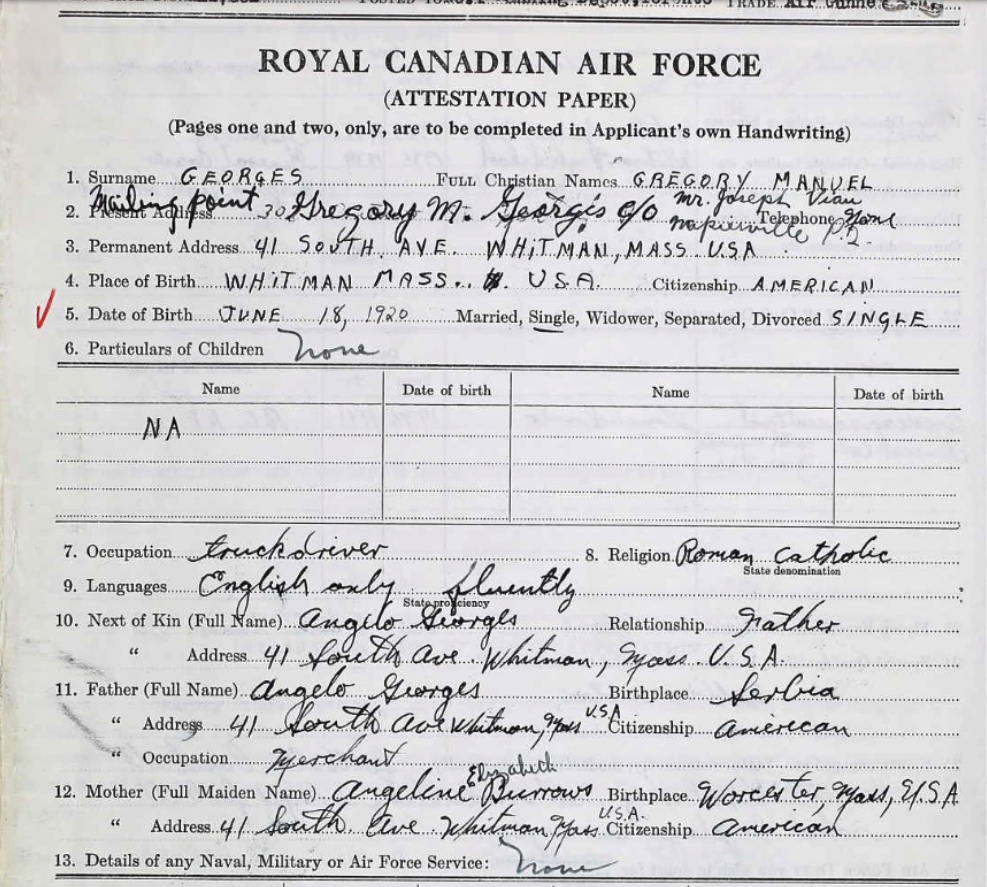 TRADE Air Gunner
ROYAL CANADIAN AIR FORCE
(ATTESTATION PAPER)
(Pages one and two, only, are to be completed in Applicant's own Handwriting)
1. Surname GEORGES FULL Christian Names GREGORY MANUEL
Mailing point Mr. Joseph Vian
2. Present Address Gregory M. Georges c/o Napierville P.Q. Telephone
3. Permanent Address 41 SOUTH AVE. WHITMAN, MASS. U.S.A
4. Place of Birth WHITMAN MASS. U.S.A. Citizenship AMERICAN
5. Date of Birth JUNE 18, 1920 Married, Single, Widower, Separated, Divorced SINGLE
6. Particulars of Children None
Name Date of birth Name Date of birth
NA
7. Occupation truckdriver 8. Religion Roman Catholic
State denomination
9. Languages English only fluently
State proficiency
10. Next of Kin (Full Name) Angelo Georges Relationship Father
" Address 41 South Ave. Whitman, Mass. U.S.A.
11. Father (Full Name) Angelo Georges Birthplace Serbia
" Address 41 South Ave Whitman, Mass U.S.A Citizenship American
" Occupation Merchant
12. Mother (Full Maiden Name) Angeline Elizabeth Burrows Birthplace Worcester, Mass, U.S.A
" Address 41 South Ave. Whitman, Mass U.S.A. Citizenship American
13. Details of any Naval, Military or Air Force Service: None